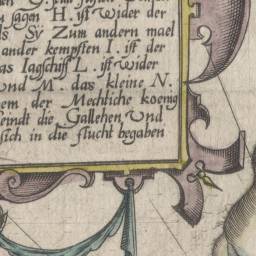 sagen H. ist wider der
Sÿ Zum andern mael
ander kempffen I. ist der
das Iagschiff L. ist wider
vnd M. das kleine N.
dem der Mechtiche koenig
feindt die Gallehen Vnd
sich in die flucht begaben